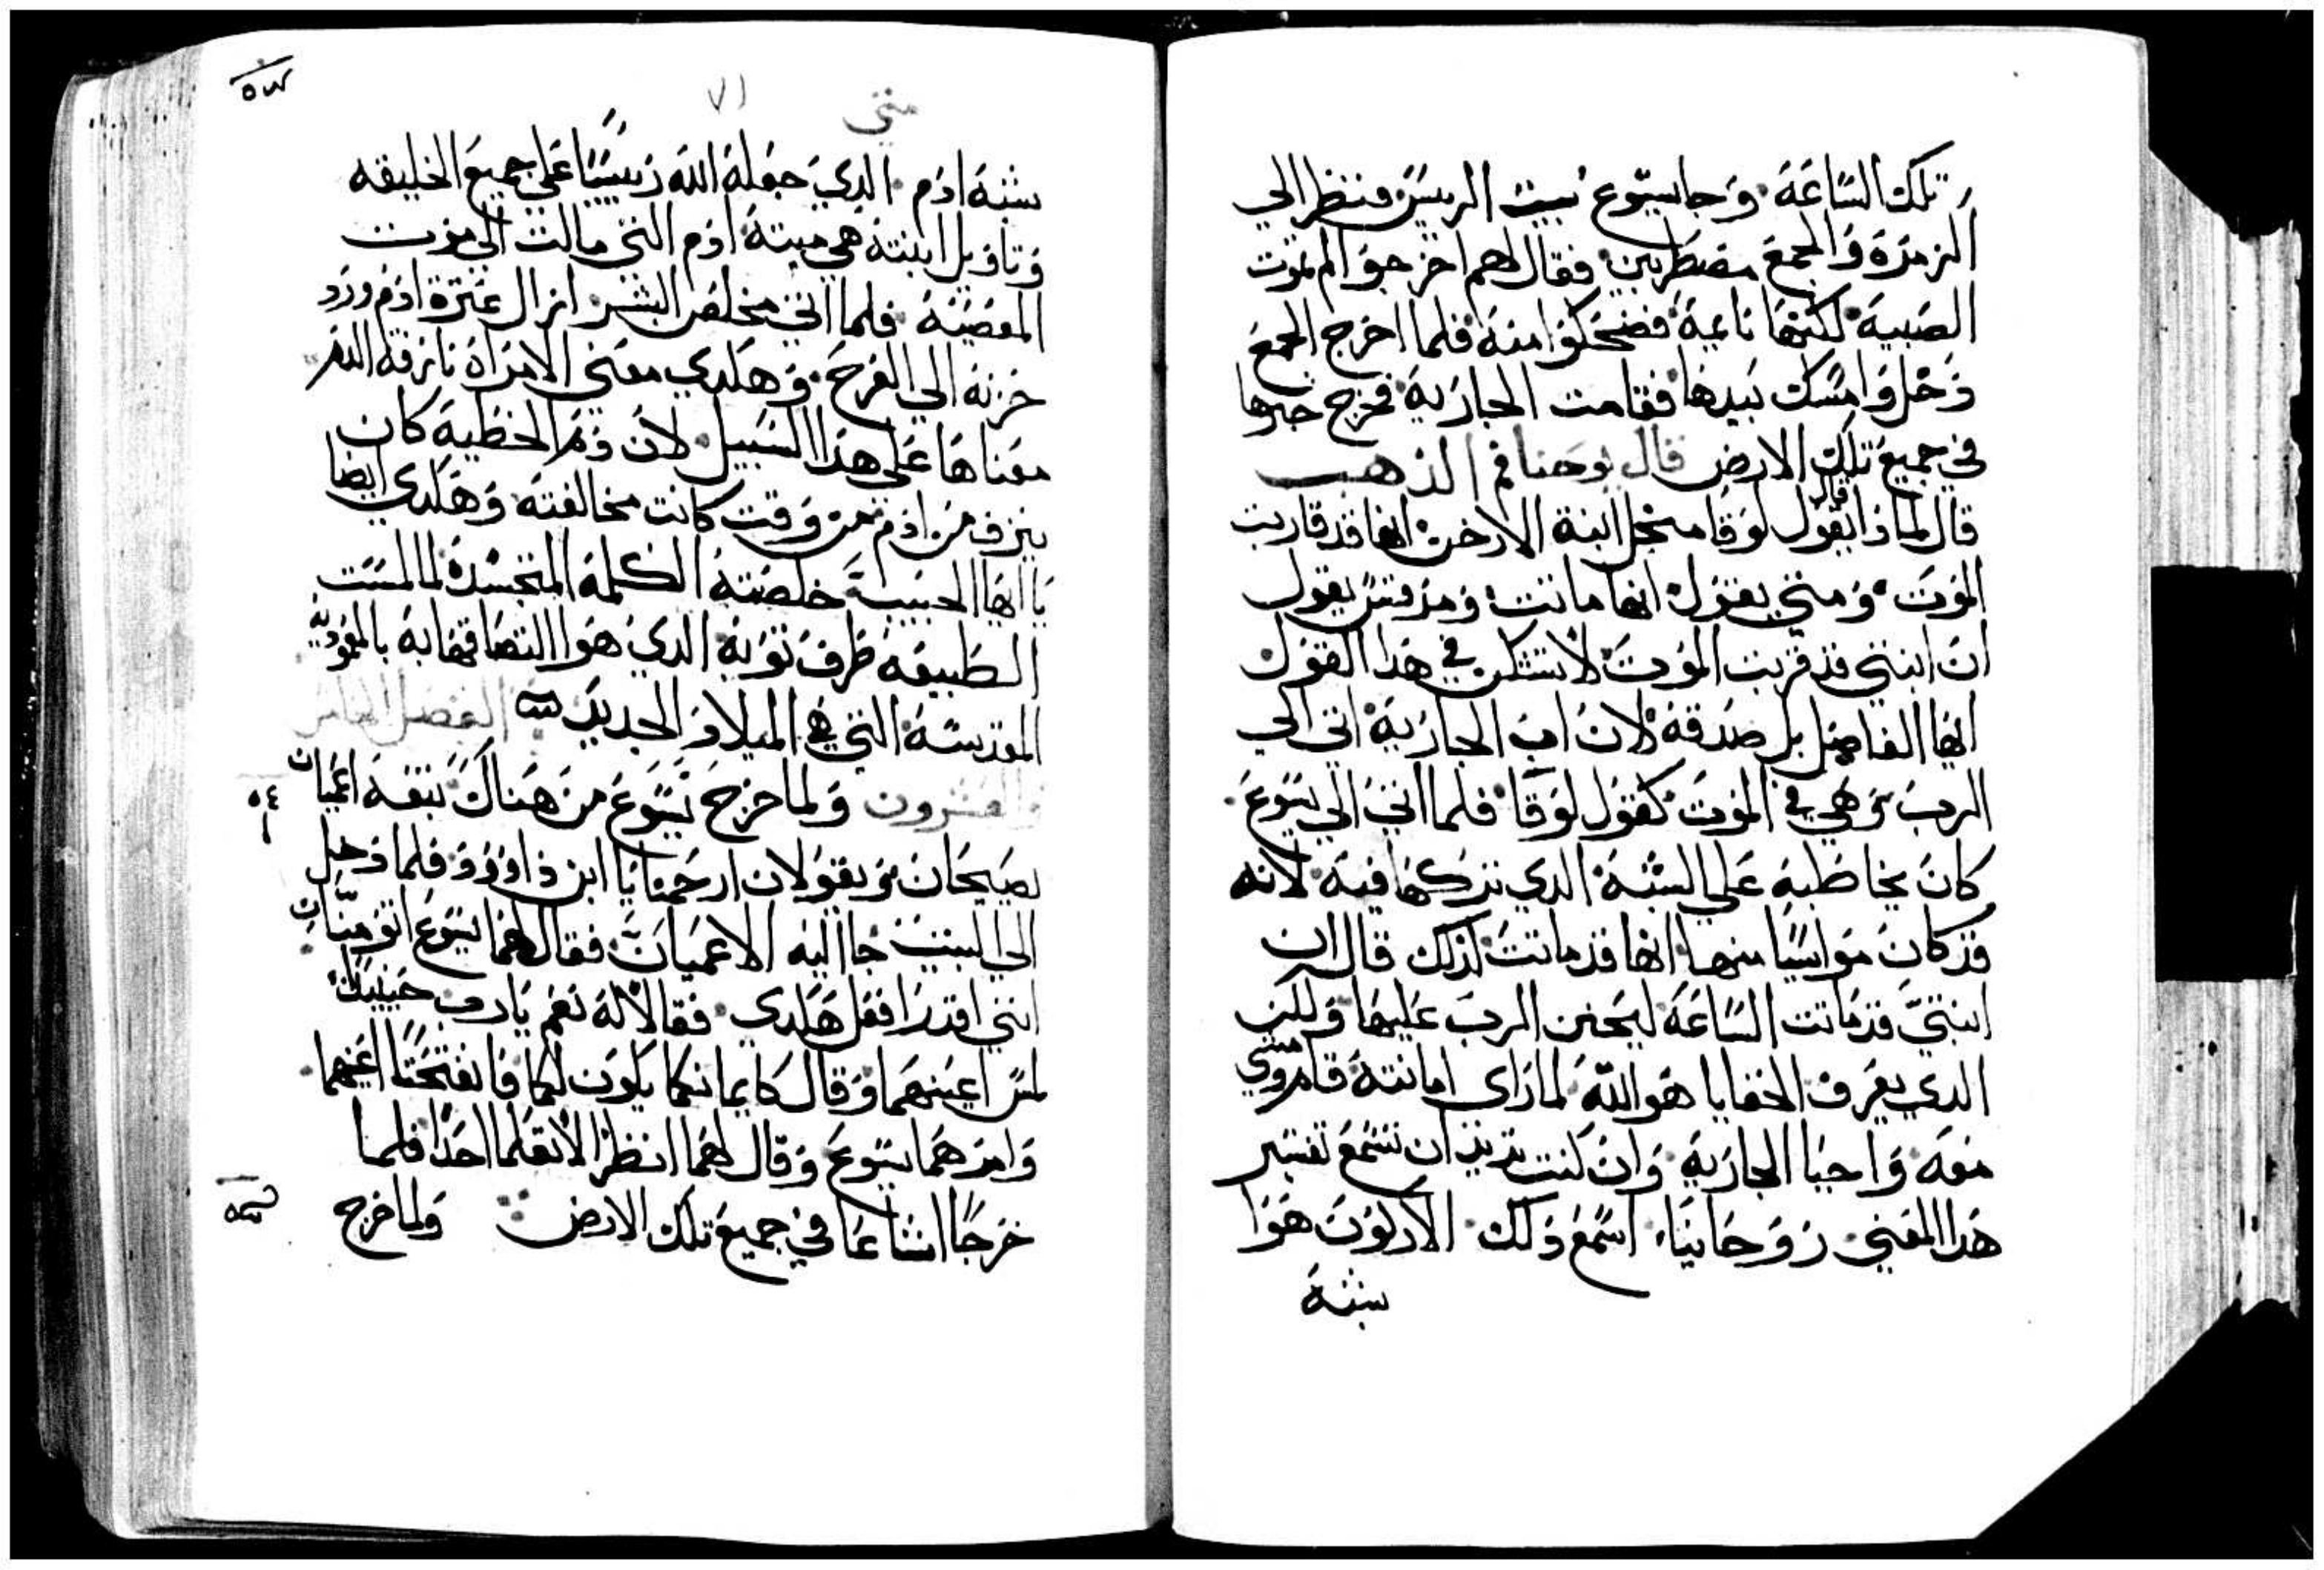 تلك الساعة وجا يسوع بيت الريس فنظر الي
الزمرة والجمع مضطربين فقال لهم اخرجوا لم تموت
الصبية لكنها نايمة فضحكوا منه فلما اخرج الجمع
دخل وامسك بيدها فقامت الجارية فخرج خبرها
في جميع تلك الارض قال يوحنا فم الذهب
قال لماذا يقول لوقا من اجل ابنة الارخن انها قد قاربت
الموت ومتي يقول انها ماتت ومرقس يقول
ان ابنتي قد قربت الموت لا تشكن في هذا القول
ايها الفاضل بل صدقه لان اب الجارية اتي الي
الرب وهي في الموت كقول لوقا فلما اتي الي يسوع
كان يخاطبه علي الشبه الدي تركها فيه لانه
قد كان موايسا منها انها قد ماتت لذلك قال ان
ابنتي قد ماتت الساعة ليحنن الرب عليها ولكن
الدي يعرف الخفايا هو الله لما راي امانته قام ومشي
معه واحيا الجارية وان كنت تريد ان تسمع تفسير
هدا المعني روحانيا اسمع ذلك الاركون هوا
شبه
متي
٧١
شبه ادم الدي جعله الله رييسا علي جميع الخليقه
وتاويل ابنته هي ميتة ادم التي مالت الي موت
المعصية فلما اتي مخلص البشر ازال عترة ادم ورد
حزنه الي الفرح وهكدي معني الامراة نازفة الدم
معناها علي هدا السبيل لان دم الخطية كان
ينزف من ادم من وقت كانت مخالفته وهكدي ايضا
يا ايها الحبيب خلصته الكلمة المتجسدة لما لمست
الطبيعه طرف ثوبه الدي هوا التصاقها به بالمعودية
المقدسه التي هي الميلاد الجديد الفصل الثامن
والعشرون ولما خرج يسوع من هناك تبعه اعميان
يصيحان ويقولان ارحمنا يا ابن داوود فلما دخل
الي البيت جا اليه الاعميان فقال لهما يسوع اتومنان
انني اقدر افعل هكدي فقالا له نعم يارب حينيد
لمس اعينهما وقال كايمانكما يكون لكما فانفتحتا اعينهما
وامرهما يسوع وقال لهما انظرا لا تعلما احدا فلما
خرجا اشاعا في جميع تلك الارض ولما خرج
٥٤